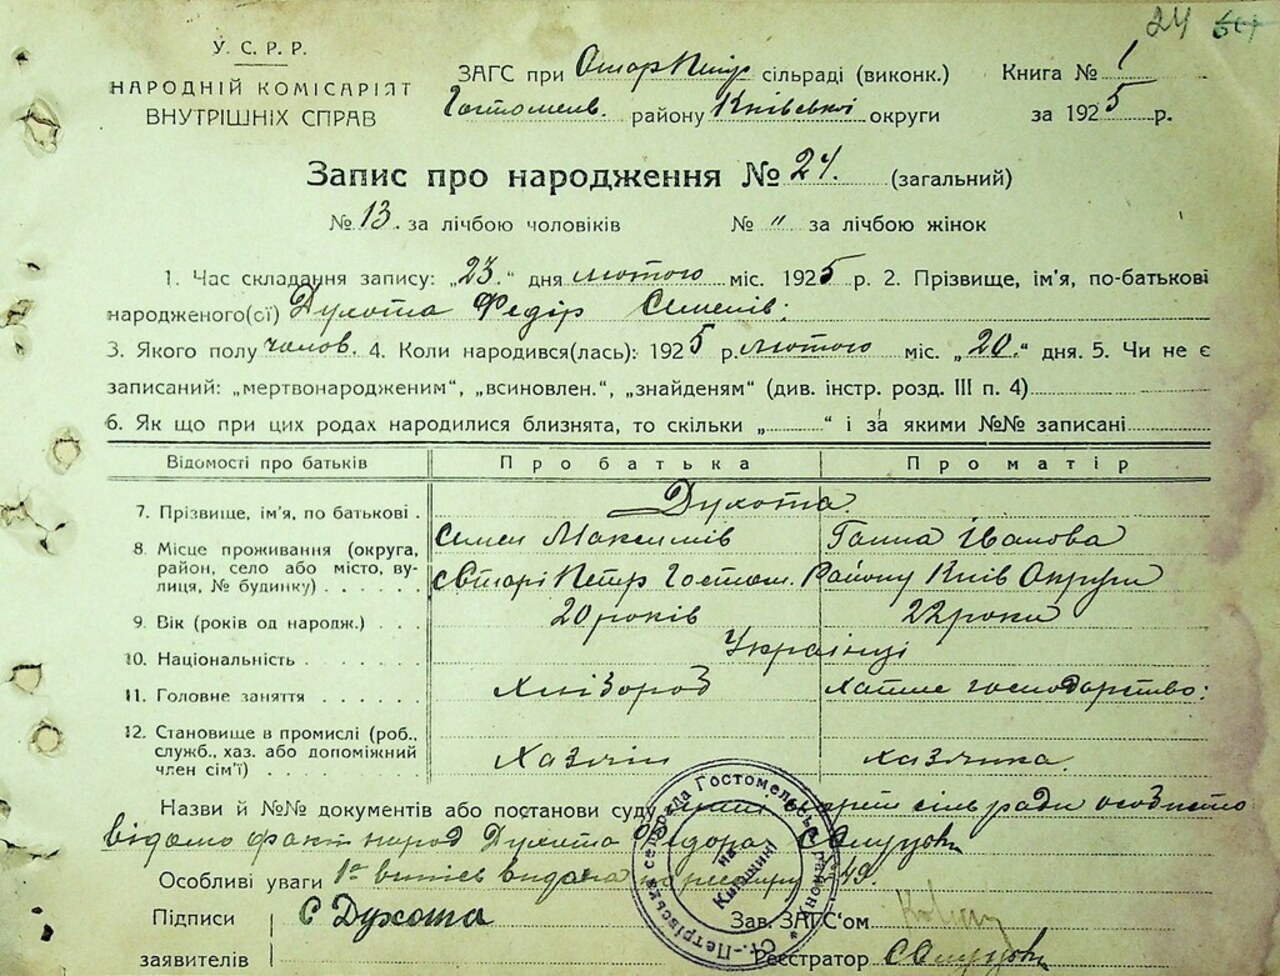 24
У. С. Р. Р.
НАРОДНІЙ КОМІСАРІЯТ
ВНУТРІШНІХ СПРАВ
ЗАГС при Старпетр сільраді (виконк.) Книга № 1
Гостомельв. району Київської округи за 1925 р.
Запис про народження № 24. (загальний)
№ 13. за лічбою чоловіків № " за лічбою жінок
1. Час складання запису: „23.“ дня лютого міс. 1925 р. 2. Прізвище, ім'я, по-батькові
народженого(ої) Духота Федір Семенів:
3. Якого полу чолов. 4. Коли народився(лась): 1925 р. лютого міс. „20.“ дня. 5. Чи не є
записаний: „мертвонародженим“, „всиновлен.“, „знайденям“ (див. інстр. розд. III п. 4)
6. Як що при цих родах народилися близнята, то скільки „ “ і за якими №№ записані
Відомості про батьків Про батька Про матір
7. Прізвище, ім'я, по батькові . Духота.
Семен Максимів Ганна Іванова
8. Місце проживання (округа, район, село або місто, вулиця, № будинку) с Старі Петр Гостом. Району Київ Округи
9. Вік (років од народж.) . . . 20 років 22 роки
10. Національність . . . . . . Українці
11. Головне заняття . . . . . . хлібороб хатне господарство:
12. Становище в промислі (роб., служб., хаз. або допоміжний член сім'ї) . . . . . . . Хазяїн хазяйка.
Назви й №№ документів або постанови суду сільради особисто
відомо факт народ Духота Федора
Особливі уваги 1а витів видана по реєстру 49.
Підписи С Духота Зав. ЗАГС'ом
заявителів Реєстратор
Ст.-Петрівська сельрада Гостомельськ. району
на Київщині